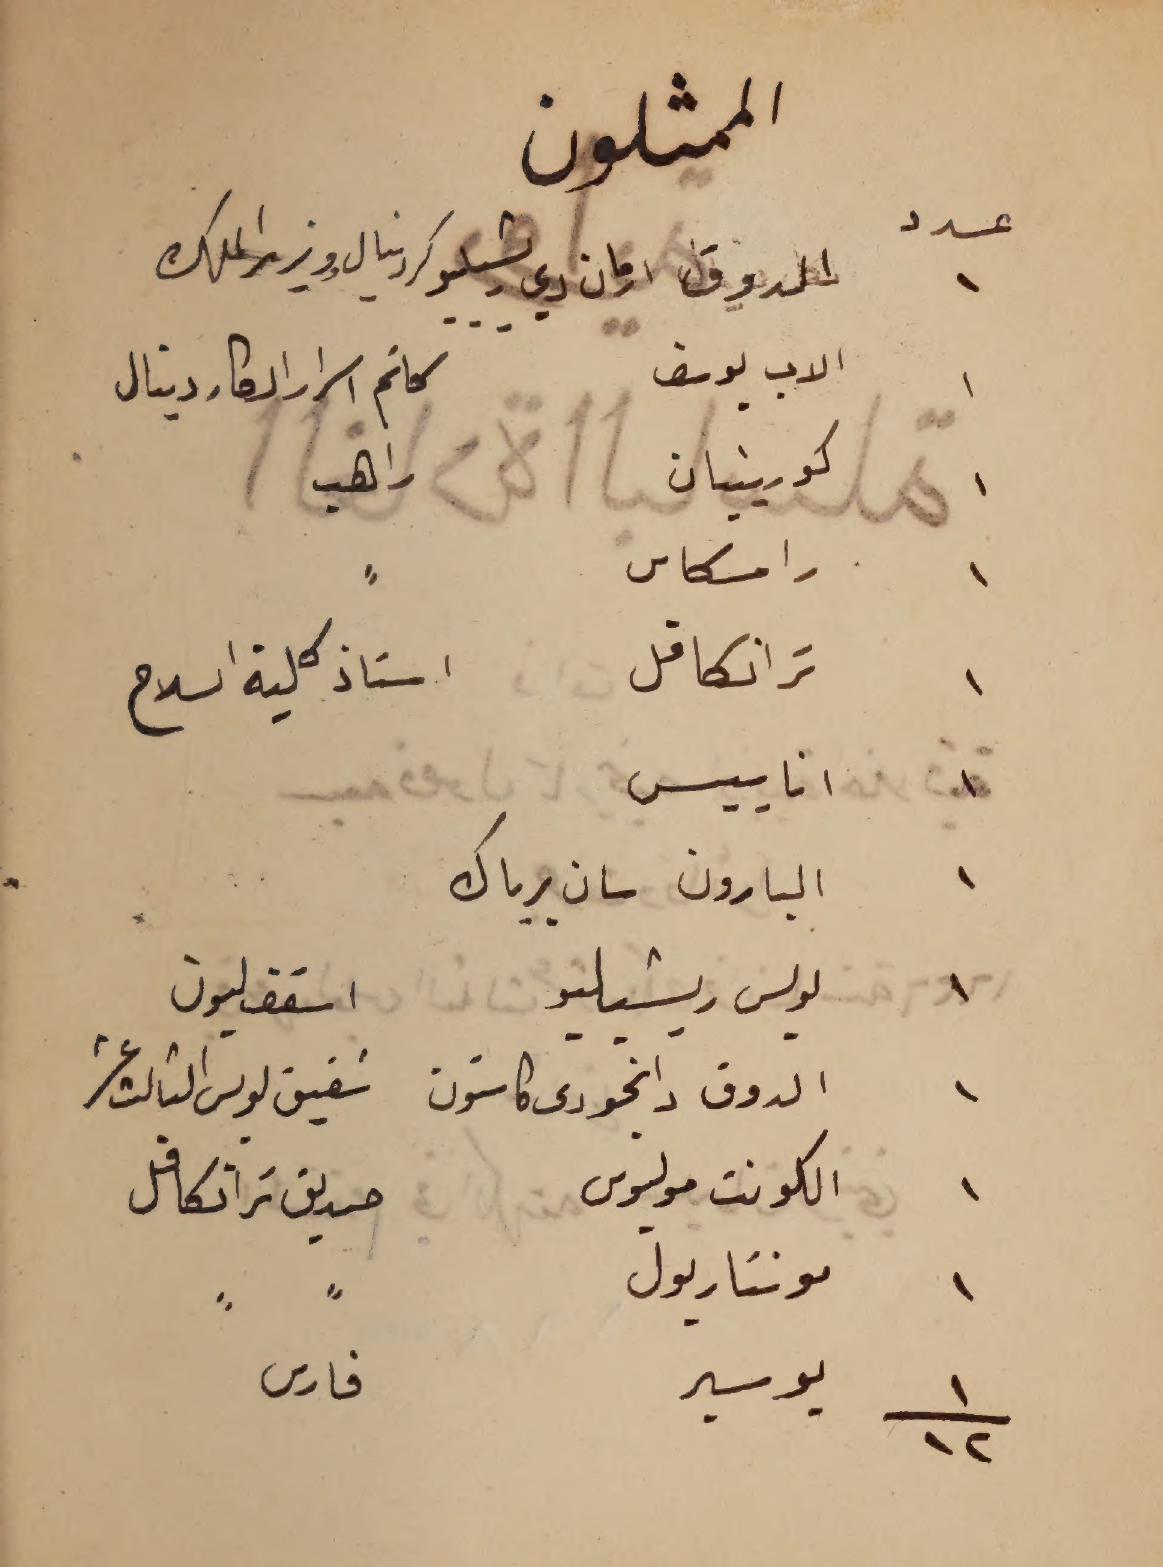 الممثلون
عدد
١ الدوق ارمان دي ريشيليو كردينال وزير الملك
١ الاب يوسف كاتم اسرار الكاردينال
١ كورينيان راهب
١ راسكاس "
١ ترانكافل استاذ كلية السلاح
١ اناييس
١ البارون سان برياك
١ لويس ريشيليو اسقف ليون
١ الدوق دانجو دى كاستون شقيق لويس الثالث عشر
١ الكونت موليوس صديق ترانكافل
١ مونتاريول " "
١ بوسير فارس
١٢